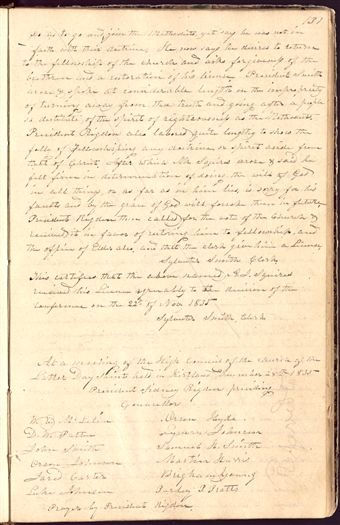 131
so as to go and join the Methodists, yet say he was not in
faith with their doctrine, He now says he desires to return
to the fellowship of the church and asks forgiveness of the
brethren and a restoration of his licence. President Smith
arose & spoke at considerable length on the impropriety
of turning away from the truth and going after a people
so destitute of the spirit of righteousness as the Methodists.
President Rigdon also labored quite lengthy to show the
folly of fellowshiping any doctrine or spirit aside from
that of Christ, After which Mr Squires arose & said he
felt firm in determination of doing the will of God
in all things, or as far as in him lies, is sorry for his
faults and by the grace of God will forsake them in future
President Rigdon then called for the vote of the Church &
received it in favor of restoring him to fellowship, and
the office of Elder also, and that the clerk give him a License
Sylvester Smith, Clerk
This certifies that the above named, A. J. Squires
received his License agreeably to the decision of the
conference on the 22d of Nov 1835
Sylvester Smith, Clerk
At a meeting of the High Council of the church of the
Latter Day Saints held in Kirtland December 28th 1835
President Sidney Rigdon presiding
Councellors
W. E. McLelin Orson Hyde
D. W. Patten Lyman Johnson
John Smith Samuel H. Smith
Orson Johnson Martin Harris
Jared Carter Brigham Young
Luke Johnson Parley P. Pratt
Prayer by President Rigdon,